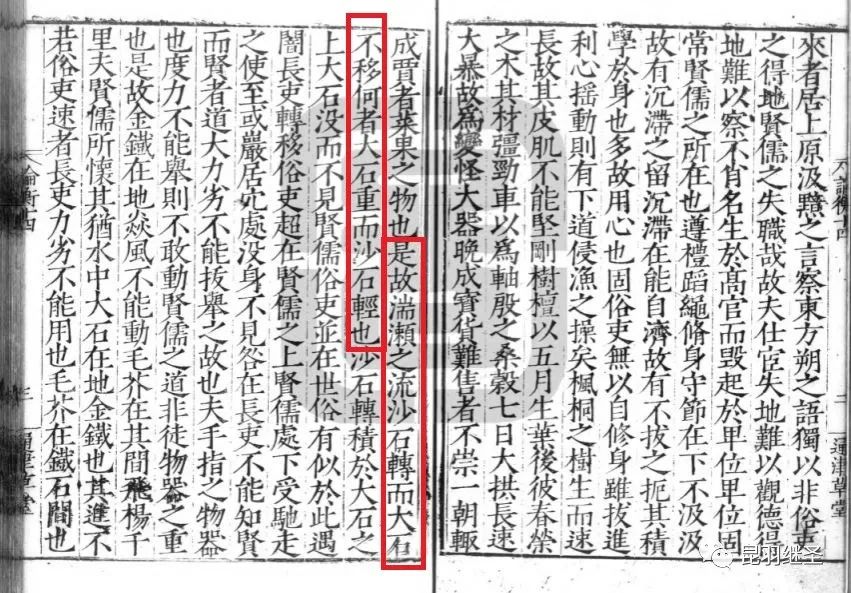 來者居上原汲黯之言察東方朔之語獨以非俗吏
之得地賢儒之失職哉故夫仕宦失地難以觀德得
地難以察不肖名生於高官而毀起於卑位卑位固
常賢儒之所在也遵禮蹈繩脩身守節在下不汲汲
故有沉滯之留沉滯在能自濟故有不拔之扼其積
學於身也多故用心也固俗吏無以自修身雖拔進
利心搖動則有下道侵漁之操矣楓桐之樹生而速
長故其皮肌不能堅剛樹檀以五月生葉後彼春榮
之木其材彊勁車以為軸殷之桑穀七日大拱長速
大暴故為變怪大器晚成寶貨難售者不崇一朝輙
成賈者菜果之物也是故湍瀨之流沙石轉而大石
不移何者大石重而沙石輕也沙石轉積於大石之
上大石没而不見賢儒俗吏並在世俗有似於此遇
闇長吏轉移俗吏超在賢儒之上賢儒處下受馳走
之使至或巖居穴處没身不見咎在長吏不能知賢
而賢者道大力劣不能拔舉之故也夫手指之物器
也度力不能舉則不敢動賢儒之道非徒物器之重
也是故金鐵在地焱風不能動毛芥在其間飛楊千
里夫賢儒所懷其猶水中大石在地金鐵也其進不
若俗吏速者長吏力劣不能用也毛芥在鐵石間也
昆羽继圣